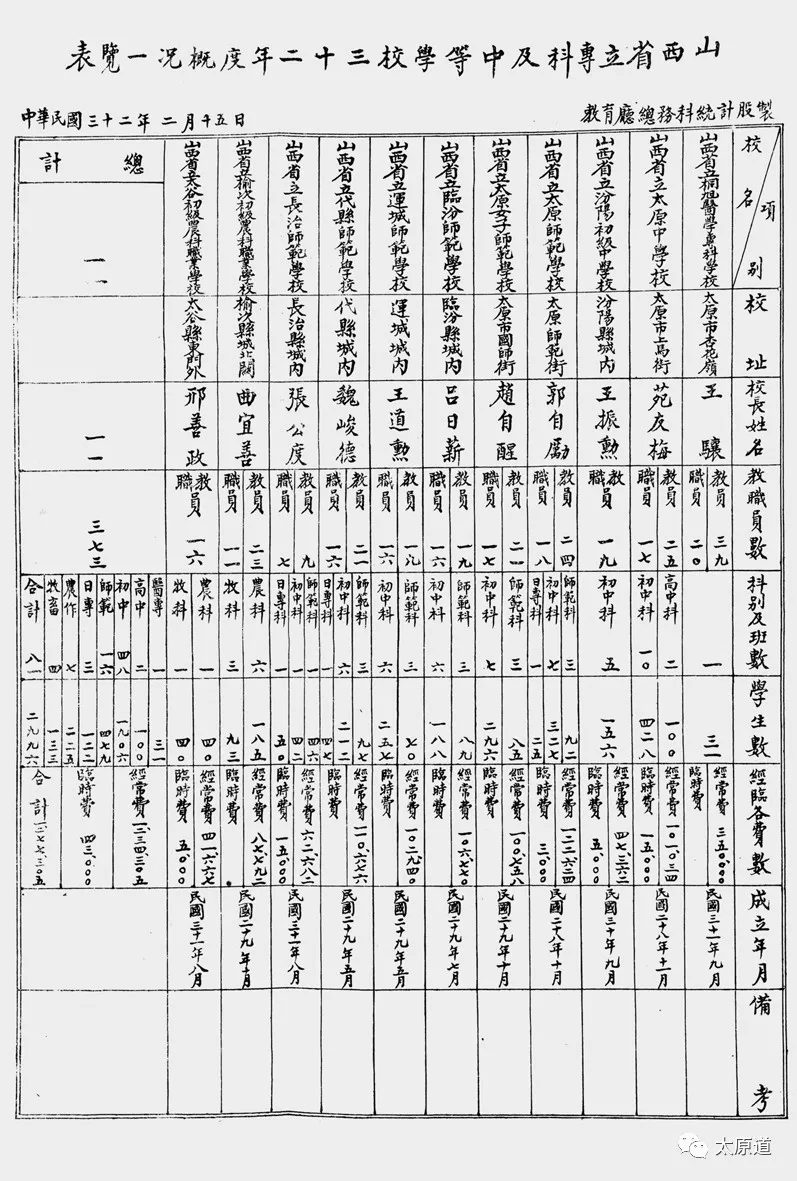 山西省立專科及中等學校三十二年度概況一覽表
教育廳總務科統計股製
中華民國三十二年二月十五日
項別
校名
校址
校長姓名
教職員數
科別及班數
學生數
經臨各費數
成立年月
備考
山西省立桐旭醫學專科學校
太原市杏花嶺
王驤
教員 三九
職員 二〇
一
三一
經常費 三五〇、〇〇〇
臨時費
民國三十一年九月
山西省立太原中學校
太原市上馬街
苑友梅
教員 二五
職員 一七
高中科 二
初中科 一〇
一〇〇
四二八
經常費 一〇一、〇三四
臨時費 一五、〇〇〇
民國二十八年十一月
山西省立汾陽初級中學校
汾陽縣城內
王振勲
教職員 一九
初中科 五
一五六
經常費 四七、三六二
臨時費 五、〇〇〇
民國三十年九月
山西省立太原師範學校
太原師範街
郭自勵
教員 二四
職員 一八
師範科 三
初中科 七
日專科 一
九二
三二七
二五
經常費 一二二、六二四
臨時費 三、〇〇〇
民國二十八年十月
山西省立太原女子師範學校
太原市國師街
趙自醒
教員 二一
職員 一七
師範科 三
初中科 七
八五
二九六
經常費 一〇〇、七五八
臨時費
民國二十九年十月
山西省立臨汾師範學校
臨汾縣城內
呂日薪
教員 一九
職員 一六
師範科 三
初中科 六
八九
一八八
經常費 一〇六、七七〇
臨時費
民國二十九年七月
山西省立運城師範學校
運城城內
王道勲
教員 一九
職員 一六
師範科 三
初中科 六
七〇
二五七
經常費 一〇二、九〇四
臨時費
民國二十九年五月
山西省立代縣師範學校
代縣城內
魏峻德
教員 二一
職員 一六
師範科 三
初中科 六
日專科 一
九七
二一二
四七
經常費 一一〇、六七六
臨時費
民國二十九年五月
山西省立長治師範學校
長治縣城內
張公度
教員 九
職員 七
師範科 一
初中科 一
日專科 一
四六
四二
五〇
經常費 六二、六八二
臨時費 一五、〇〇〇
民國三十一年八月
山西省立榆次初級農科職業學校
榆次縣城北關
曲宜善
教員 二三
職員 一一
農科 六
牧科 三
一八五
九三
經常費 八七、七九二
臨時費
民國二十九年十月
山西省立太谷初級農科職業學校
太谷縣東門外
邢善政
教職員 一六
農科 一
牧科 一
四〇
四〇
經常費 四一、六六七
臨時費 五、〇〇〇
民國三十一年八月
總計
一一
一一
三七三
醫專 一
高中 二
初中 四八
師範 一六
日專 三
農作 七
牧畜 四
合計 八一
三一
一〇〇
一九〇六
四七九
一二二
二二五
一三三
二九九六
經常費 一、二三四、三〇五
臨時費 四三、〇〇〇
合計 一、二七七、三〇五
太原道